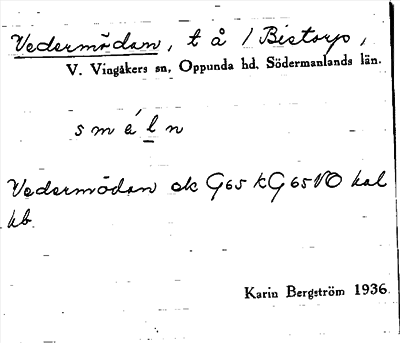 Vedermödan, t å / Bistorp,
V. Vingåkers sn, Oppunda hd. Södermanlands län.
s m é l n
Vedermödan ek G65 kG65NO kal
kb.
Karin Bergström 1936